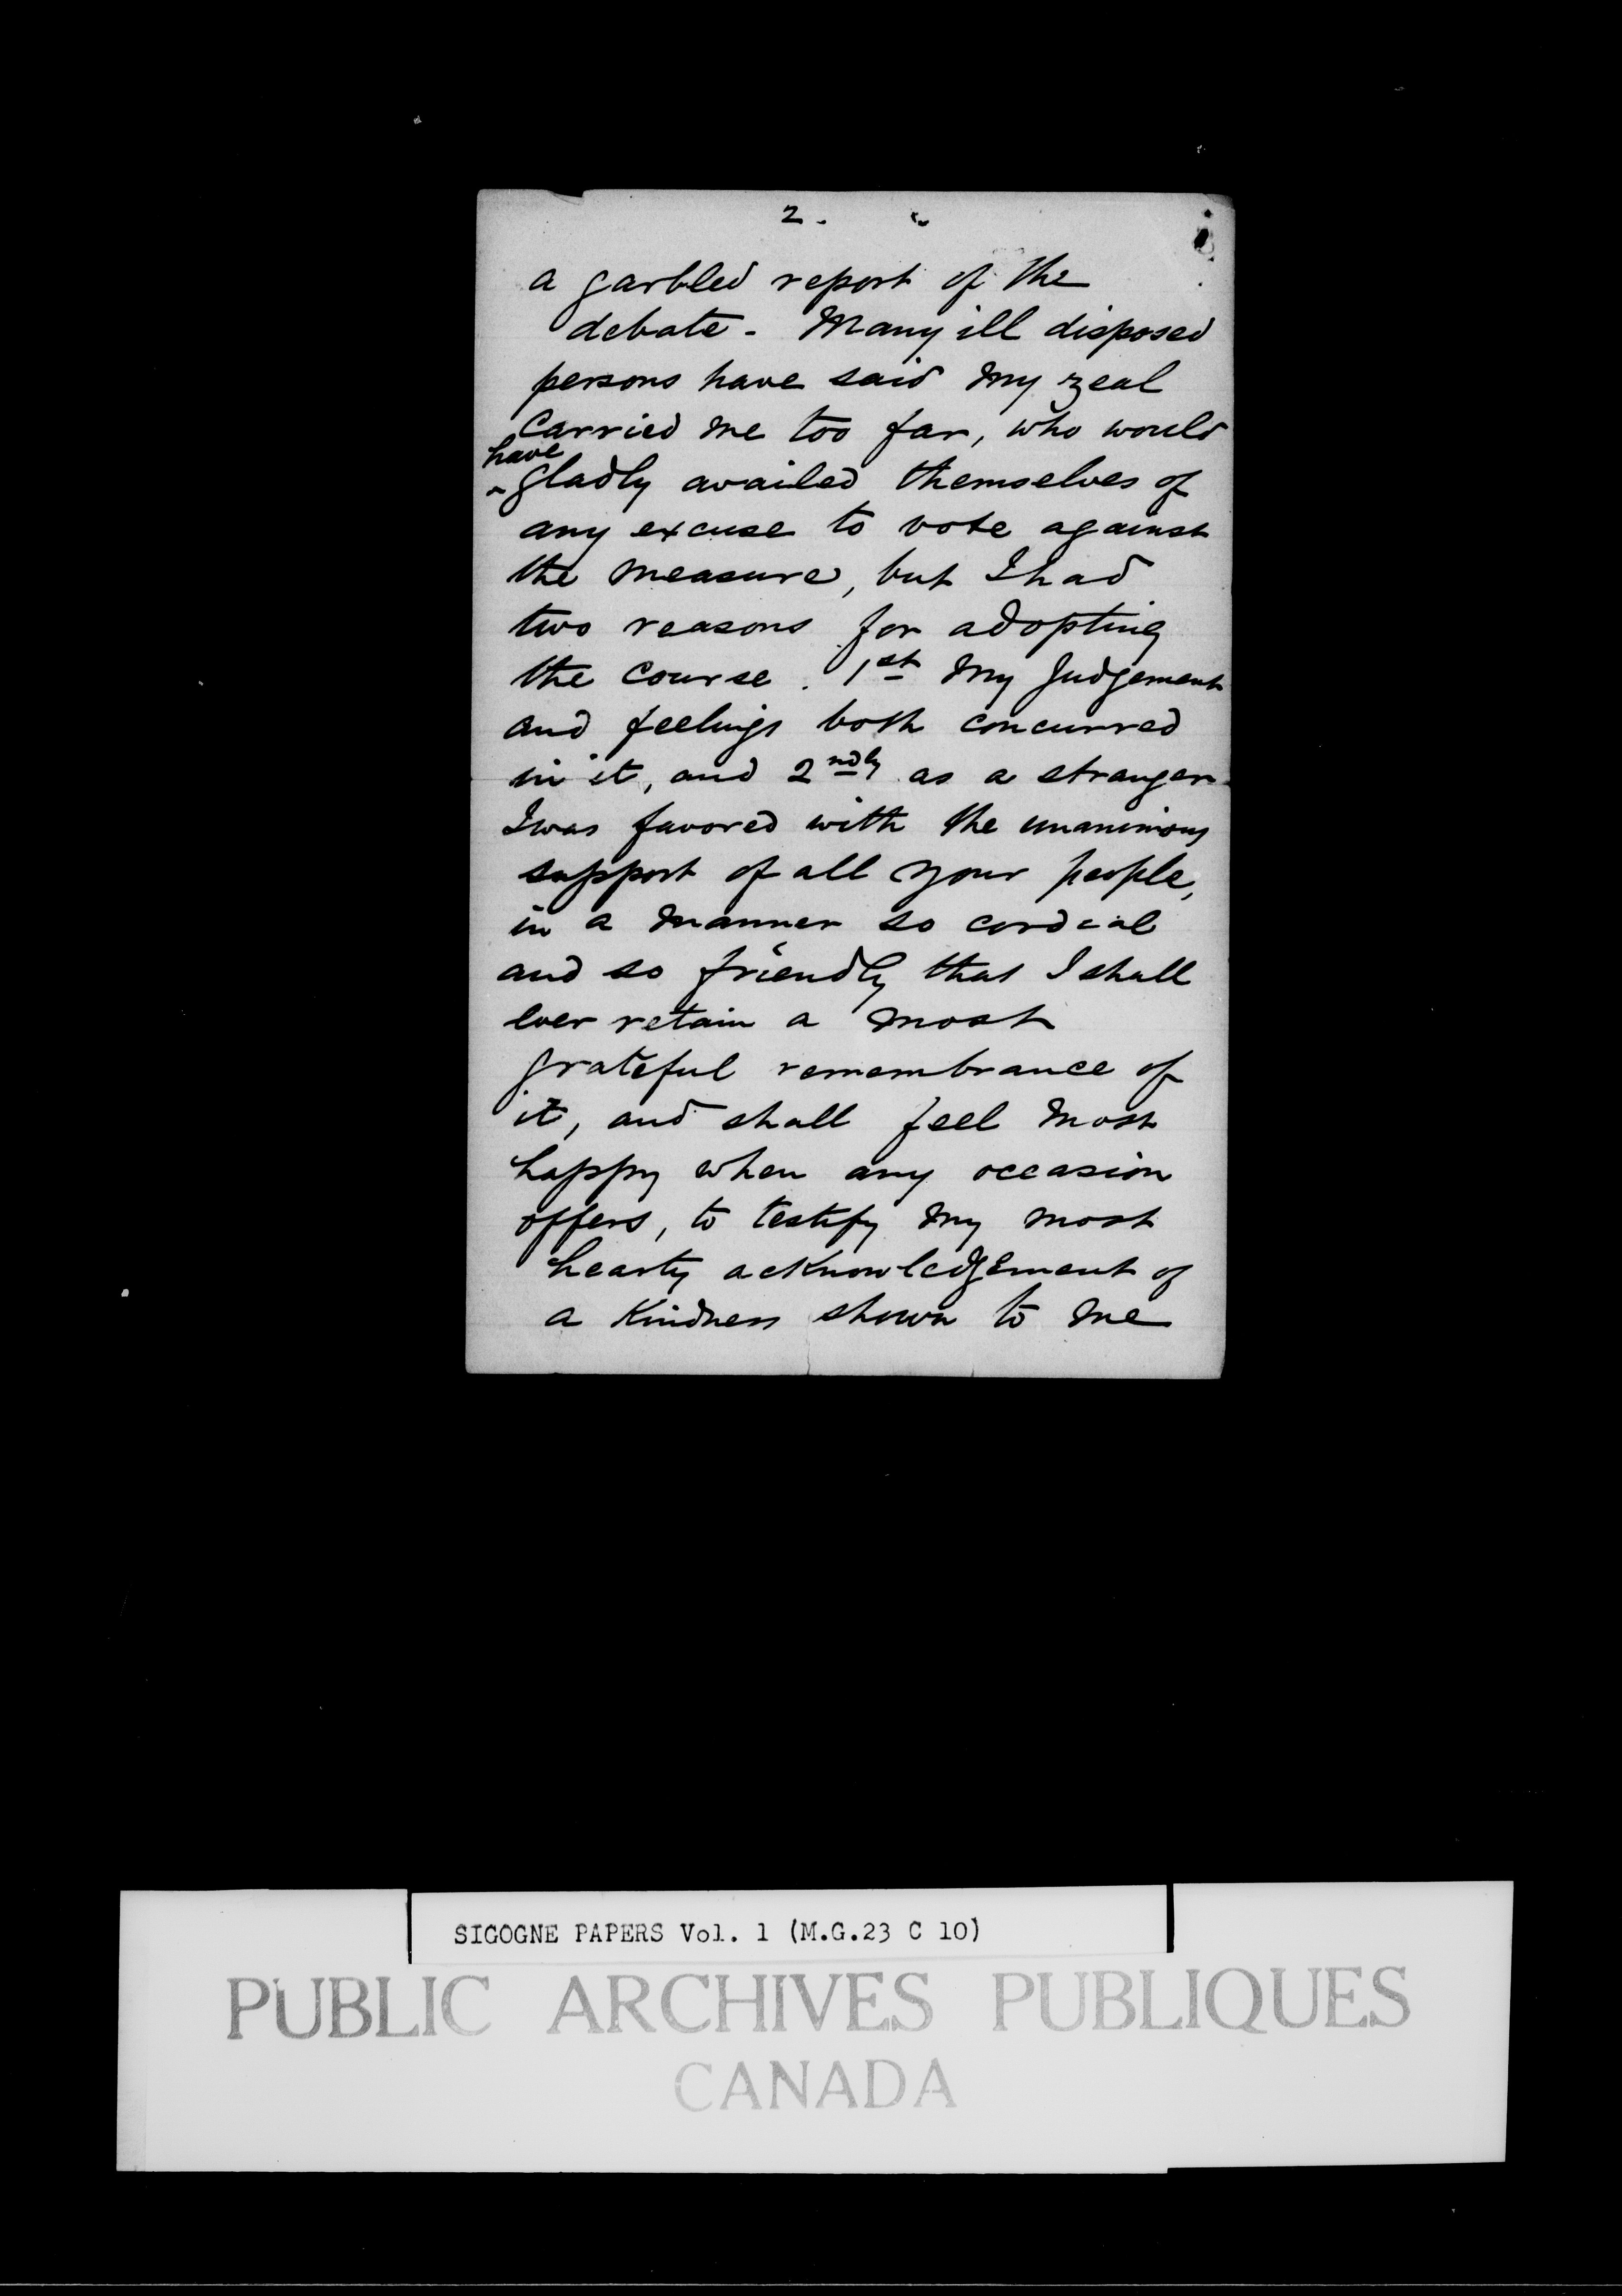 2.
a garbled report of the
debate - Many ill disposed
persons have said my zeal
carried me too far, who would
have
^ gladly availed themselves of
any excuse to vote against
the measure, but I had
two reasons for adopting
the course. 1st My Judgement
and feelings both concurred
in it, and 2ndly as a stranger
I was favored with the unanimous
support of all your people,
in a manner so cordial
and so friendly that I shall
ever retain a most
grateful remembrance of
it, and shall feel most
happy when any occasion
offers, to testify my most
hearty acknowledgement of
a kindness shown to me
SIGOGNE PAPERS Vol. 1 (M.G.23 C 10)
PUBLIC ARCHIVES PUBLIQUES
CANADA